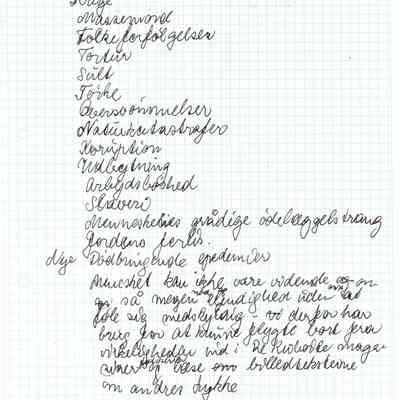 Massemord
Folkeforfølgelser
Tortur
Sult
Tørke
Oversvømmelser
Naturkatastrofer
Koruption
Udbytning
Arbejdsløshed
Slaveri
Menneskenes grådige ødelæggelsestrang
Jordens ferlis.
Nye Dødbringende epedemier
Mennesket kan ikke være vidende om
så megen elendighed uden at
føle sig medskyldig og derfor har
brug for at kunne flygte bort fra
virkeligheden ind i De kulørte maga-
siner og læse om billedteksterne
om andres lykke